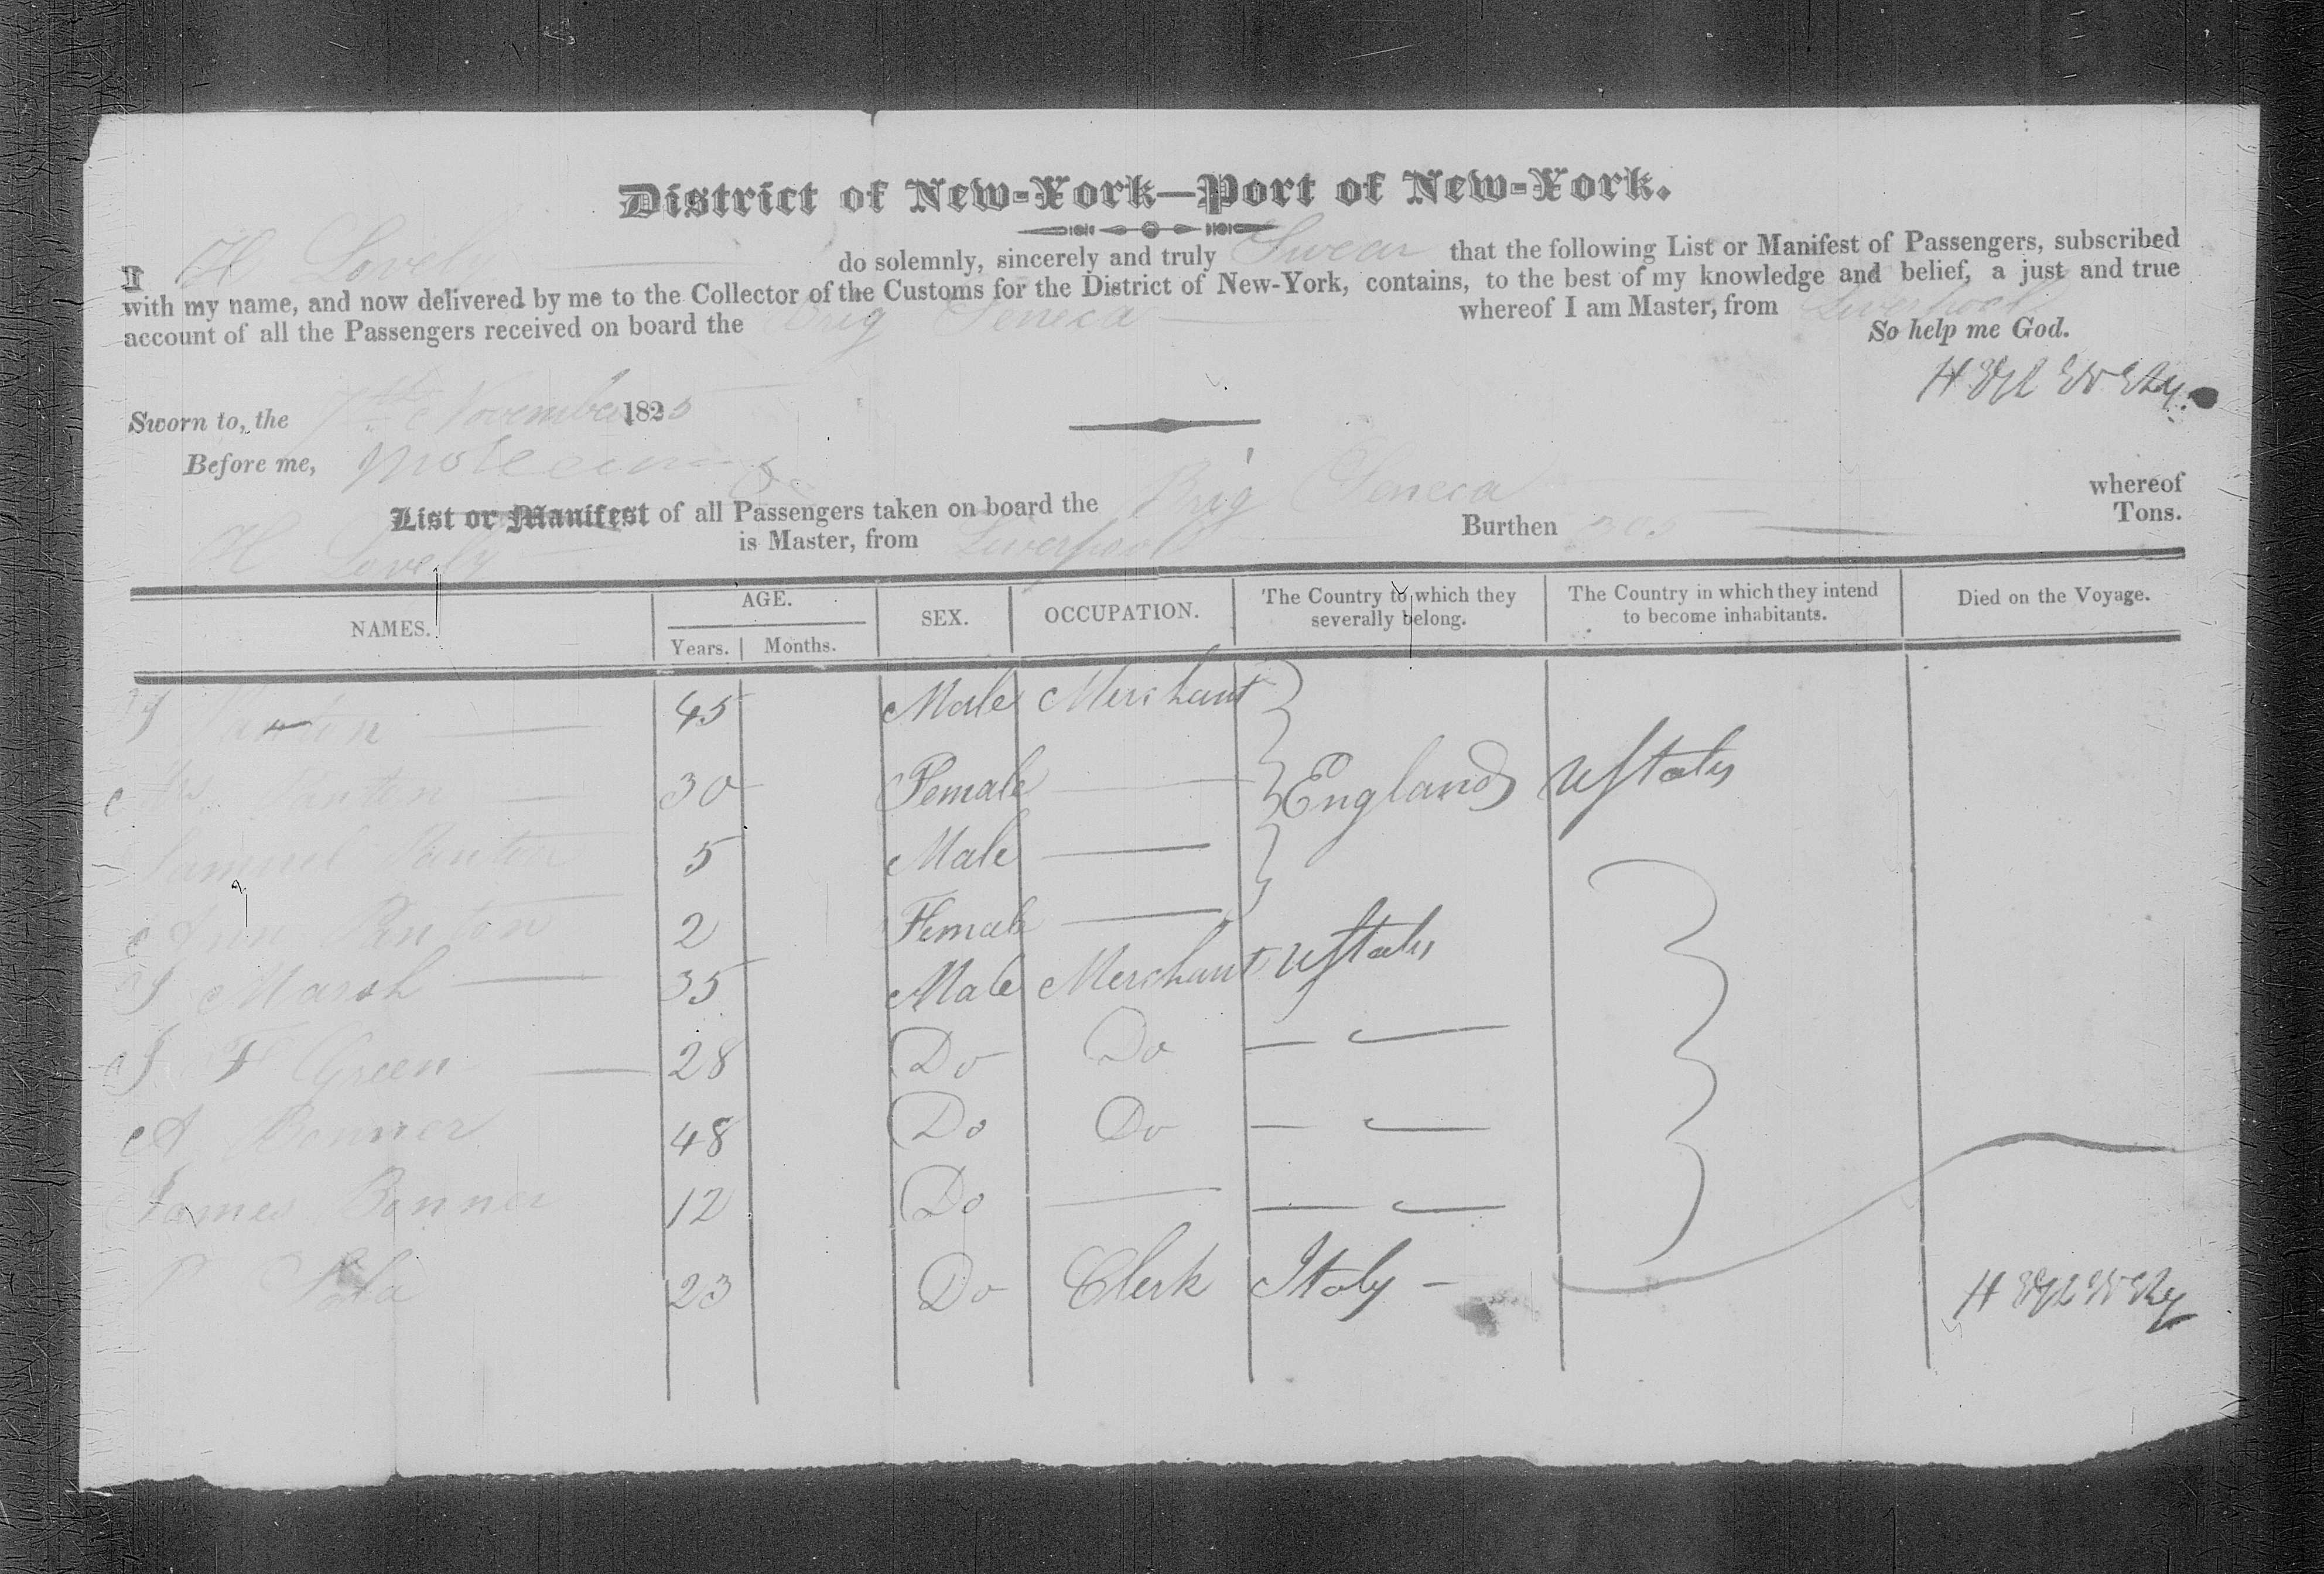 District of New-York—Port of New-York.
I H Lovely do solemnly, sincerely and truly Swear that the following List or Manifest of Passengers, subscribed
with my name, and now delivered by me to the Collector of the Customs for the District of New-York, contains, to the best of my knowledge and belief, a just and true
account of all the Passengers received on board the Brig Seneca whereof I am Master, from Liverpool
So help me God.
Sworn to, the 7th November 1825
Before me,
List or Manifest of all Passengers taken on board the Brig Seneca whereof
H Lovely is Master, from Liverpool Burthen 305 Tons.
NAMES. AGE. SEX. OCCUPATION. The Country to which they severally belong. The Country in which they intend to become inhabitants. Died on the Voyage.
Years. Months.
45 Male Merchant
Panton 30 Female England UStates
Samuel Panton 5 Male
Ann Panton 2 Female
J Marsh 35 Male Merchant UStates
J F Green 28 Do Do
A Bonner 48 Do Do
James Bonner 12 Do
P 23 Do Clerk Italy